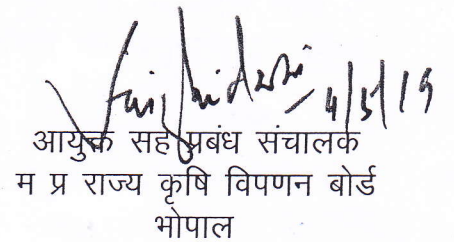 4/5/19
आयुक्त सह प्रबंध संचालक
म प्र राज्य कृषि विपणन बोर्ड
भोपाल